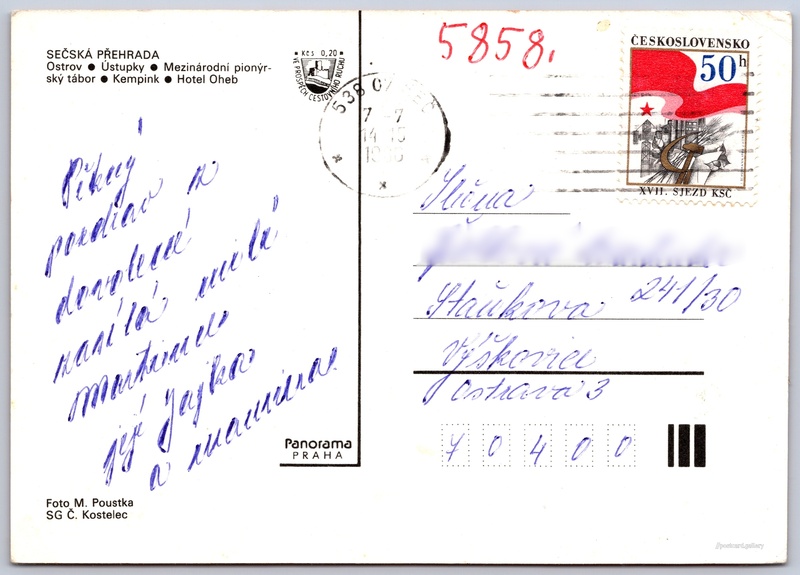 SEČSKÁ PŘEHRADA
Ostrov ● Ústupky ● Mezinárodní pionýr-
ský tábor ● Kempink ● Hotel Oheb
Kčs 0,20
VE PROSPĚCH CESTOVNÍHO RUCHU
5858.
ČESKOSLOVENSKO
50h
XVII. SJEZD KSČ
538 07
7
14-15
Pěkný
pozdrav z
dovolené
zasílá milé
Martince
její
a maminka
Slečna
Staňkova 241/30
Výškovice
Ostrava 3
70400
Panorama
PRAHA
Foto M. Poustka
SG Č. Kostelec